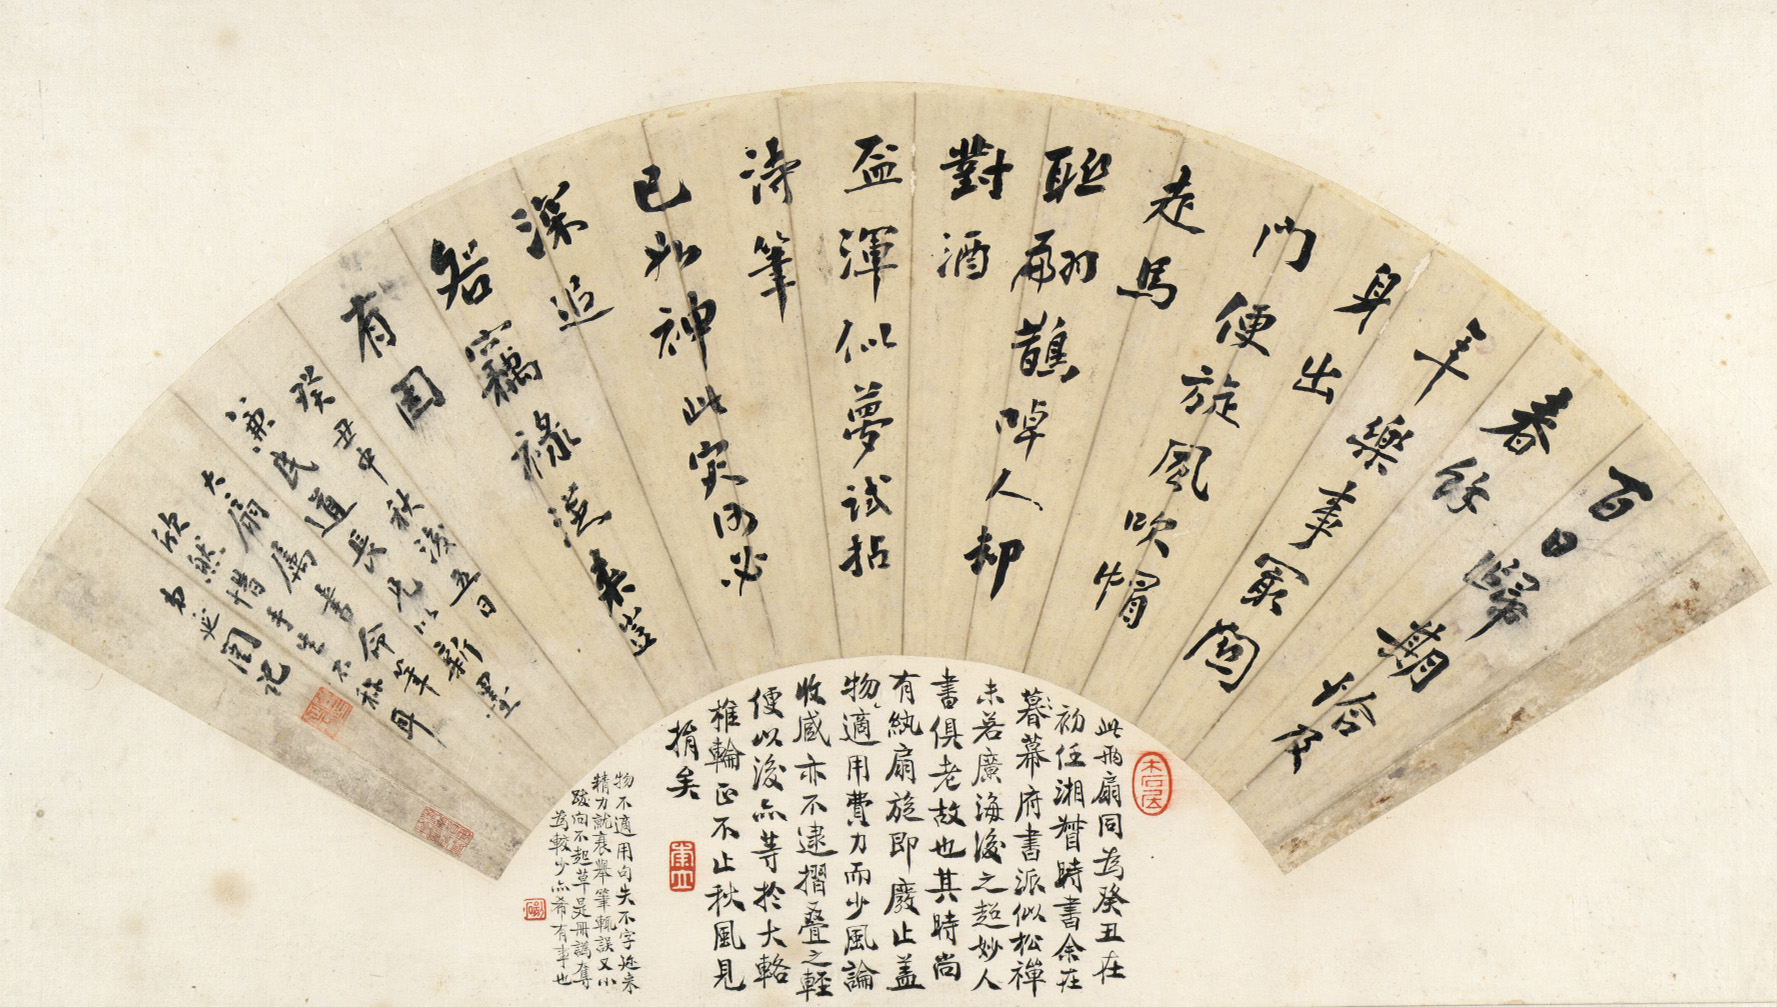 百日歸期恰及
春餘
年樂事最關
身出
門便旋風吹帽
走馬
聯翩鵲啅人却
對酒
盃渾似夢試拈
詩筆
已如神此災何必
深追
咎竊祿從來豈
有因
癸丑中秋後五日
兼民道長兄以新墨
大扇屬書命筆
欣然惜手生不稱耳
弟延闓記
木石居
此兩扇同為癸丑在
初任湘督時書余在
暮幕府書派似松禪
未若廣海後之超妙人
書俱老故也其時尚
有紈扇旋即廢止蓋
物適用費力而少風論
收藏亦不逮摺疊之輕
便以後亦等於大輅
椎輪正不止秋風見
捐矣
物不適用句失不字近來
精力就衰舉筆輒誤又小
跋向不起草是冊譌奪
為較少亦希有事也